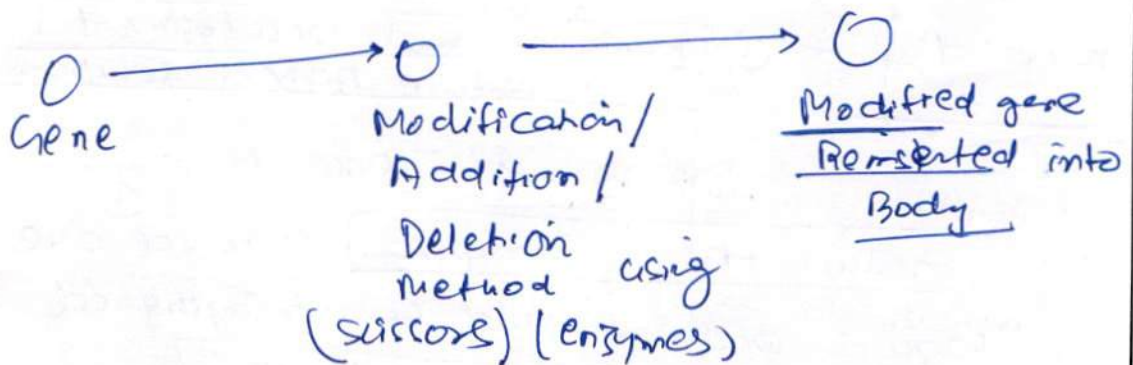 Gene
Modification/
Addition/
Deletion
Method using
(scissors) (enzymes)
Modified gene
Reinserted into
Body